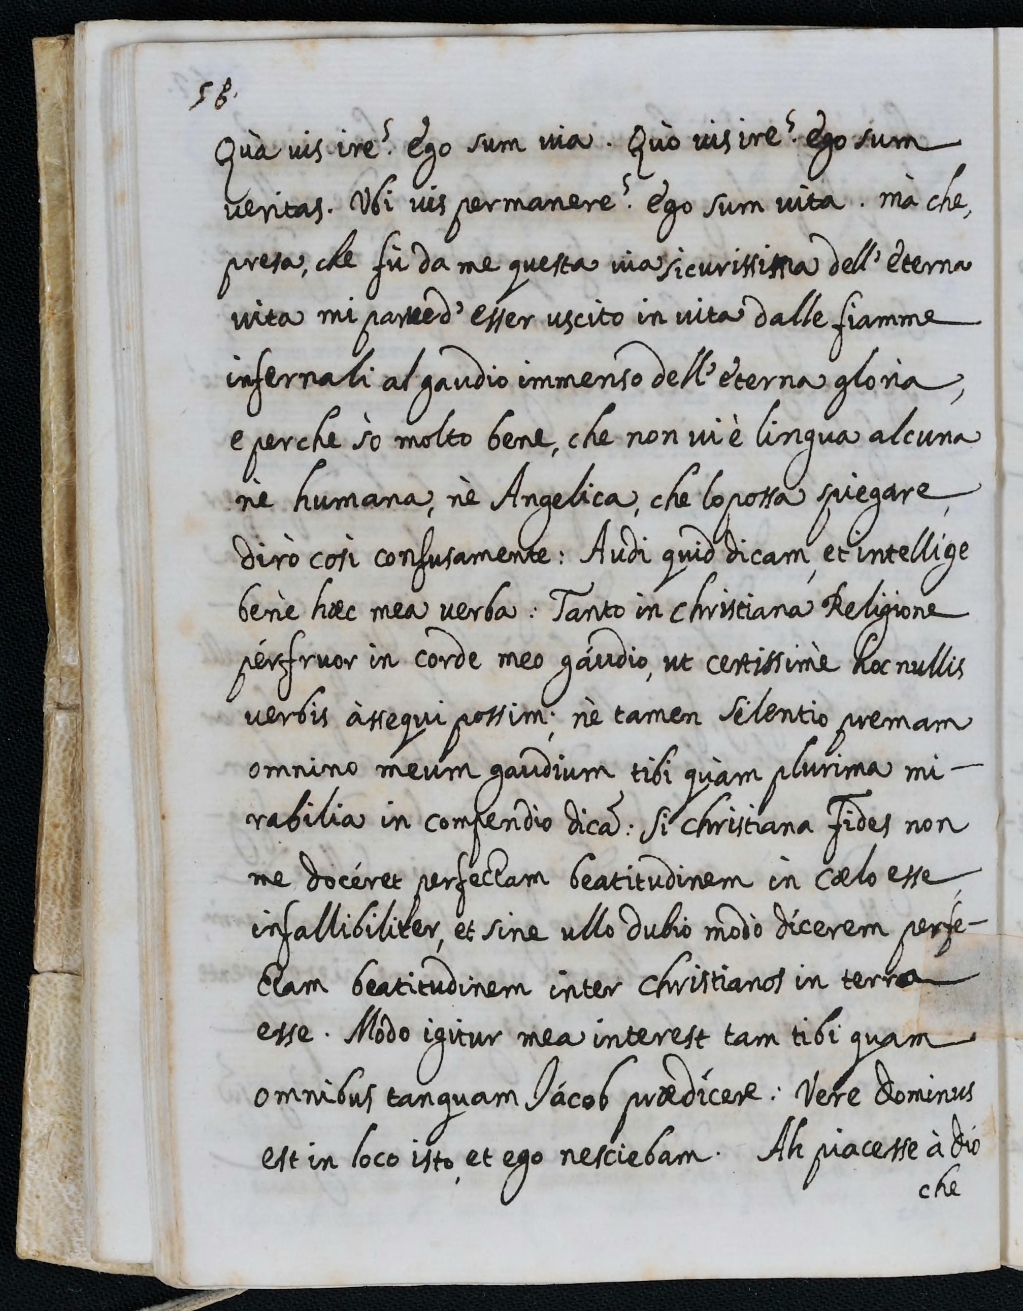 58.
Quà uis ire? ego sum uia. Quò uis ire? ego sum
ueritas. Vbi uis permanere? ego sum uita. mà che,
presa, che fù da me questa uia sicurissima dell' eterna
uita mi parue d' esser uscito in uita dalle fiamme
infernali al gaudio immenso dell' eterna gloria,
e perche sò molto bene, che non ui è lingua alcuna
nè humana, nè Angelica, che lo possa spiegare,
dirò così confusamente: Audi quid dicam, et intellige
benè hæc mea uerba: Tanto in christiana Religione
pérfruor in corde meo gáudio, ut certissimè hoc nullis
uerbis àssequi possim; nè tamen silentio premam
omnino meum gaudium tibi quàm plurima mi-
rabilia in compendio dicã: Si christiana Fides non
me docéret perfectam beatitudinem in cælo esse,
infallibiliter, et sine ullo dubio modò dícerem perfe-
ctam beatitudinem inter christianos in terra
esse. Módo igitur mea interest tam tibi quam
omnibus tanquam Jácob prædícere: Vere Dominus
est in loco isto, et ego nesciebam. Ah piacesse à dio
che